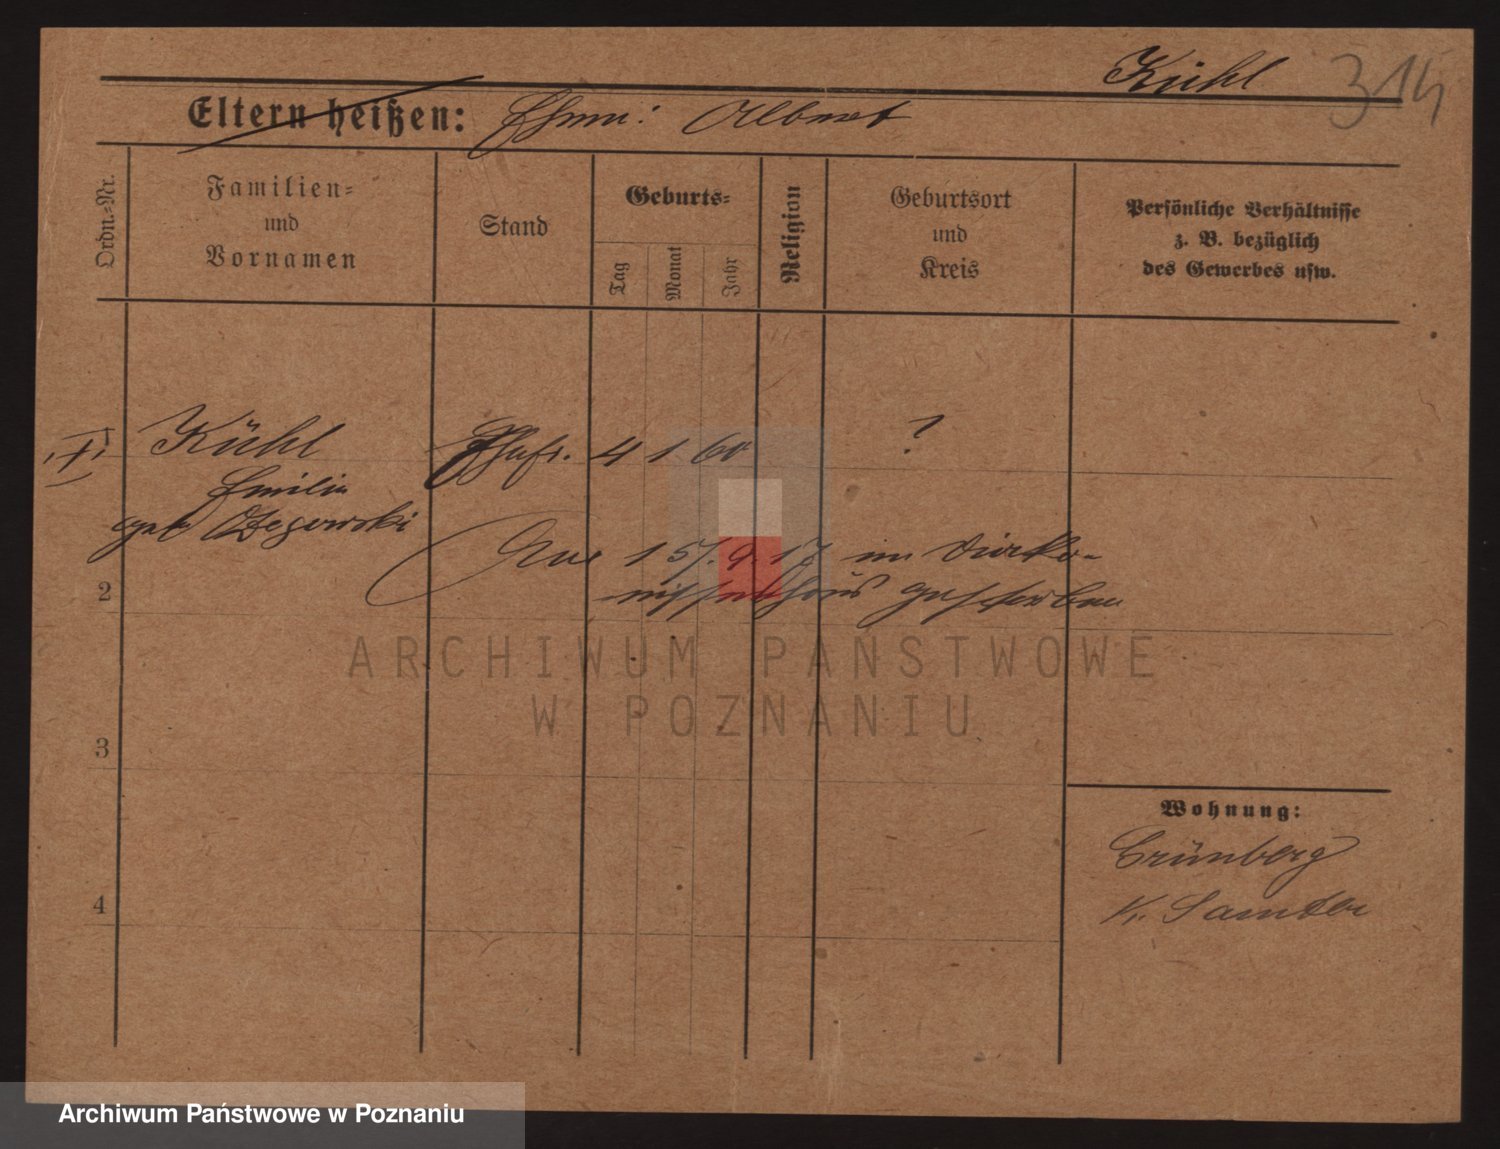 Kühl 314
Eltern heißen: Ehem: Albert
Ordn.-Nr.
Familien-
und
Vornamen
Stand
Geburts-
Tag
Monat
Jahr
Religion
Geburtsort
und
Kreis
Persönliche Verhältnisse
z. B. bezüglich
des Gewerbes usw.
Kühl
Emilie
geb
Ehefr. 4 1 60 ?
Am 15.9.17 im Diako-
nissenhaus gestorben
2
3
4
Wohnung:
Grünberg
K. Samter
ARCHIWUM PAŃSTWOWE
W POZNANIU
Archiwum Państwowe w Poznaniu